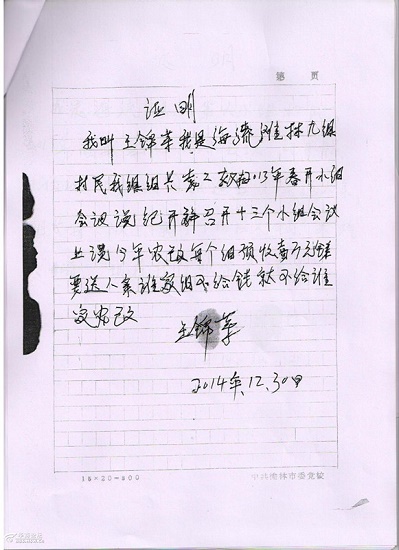 第 页
证明
我叫王锦革我是海 滩村九组
村民我组组长 2013年春开小组
会议说纪开新召开十三个小组会议
上说今年农改每个组预收壹万元钱
要送人 谁家组不给钱就不给谁
家农改
王锦革
2014年.12.30日
15×20=300
中共 林市委党校